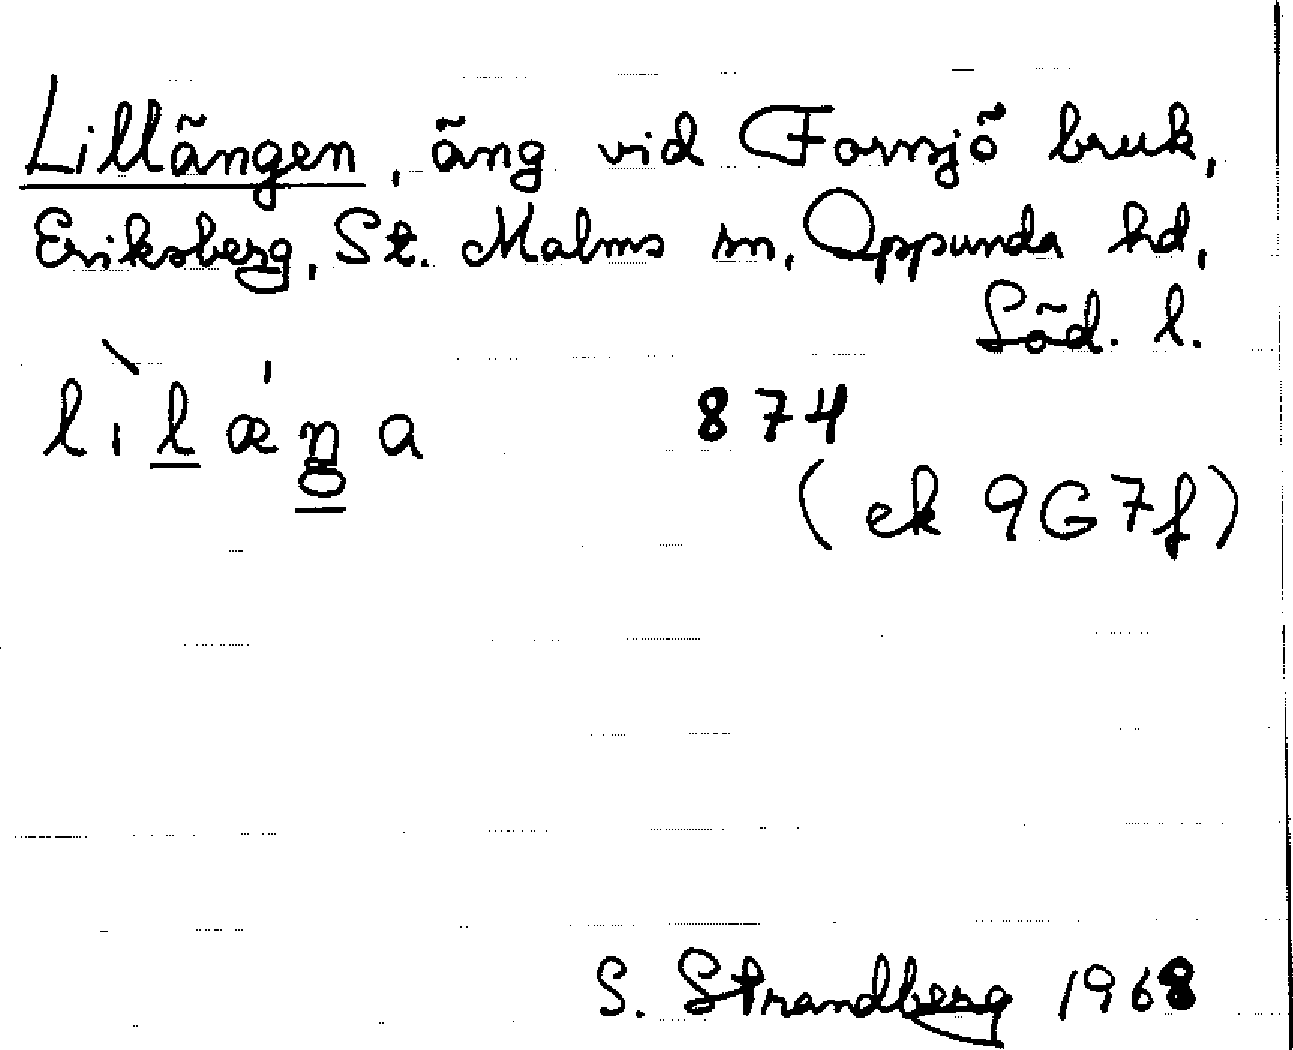 Lillängen, äng vid Fornsjö bruk,
Eriksberg, St. Malms sn, Oppunda hd,
Söd. l.
lìlǽŋa 874
(ek 9G7f)
S. Strandberg 1968